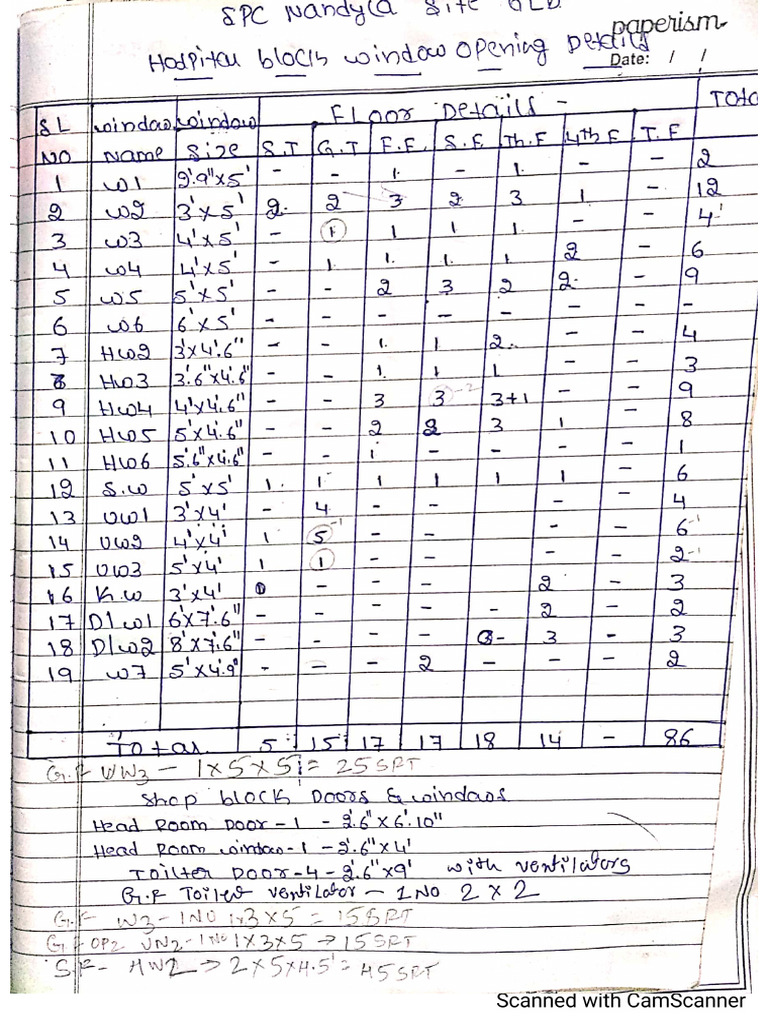 SPC Nandyla Site OLD
paperism
Hospital block window opening Details
Date: / /
SL NO | window Name | window Size | Floor Details - | Total
S.T | G.T | F.F | S.F | Th.F | 4th F | T.F
1 | W1 | 2'.9"x5' | - | - | 1. | - | 1. | - | - | 2
2 | W2 | 3'x5' | 2. | 2 | 3 | 2 | 3 | 1 | - | 12
3 | W3 | 4'x5' | - | 1 | 1 | 1 | 1. | - | - | 4'
4 | W4 | 4'x5' | - | 1. | 1. | 1. | 1 | 2 | - | 6
5 | W5 | 5'x5' | - | - | 2 | 3 | 2 | 2. | - | 9
6 | W6 | 6'x5' | - | - | - | - | - | - | - | -
7 | HW2 | 3'x4'.6" | - | - | 1. | 1 | 2. | - | - | 4
8 | HW3 | 3'.6"x4'.6" | - | - | 1. | 1 | 1 | - | - | 3
9 | HW4 | 4'x4'.6" | - | - | 3 | 3 -2 | 3+1 | - | - | 9
10 | HW5 | 5'x4'.6" | - | - | 2 | 2 | 3 | 1 | - | 8
11 | HW6 | 5'.6"x4'.6" | - | - | 1 | - | - | - | - | 1
12 | S.W | 5'x5' | 1. | 1 | 1 | 1 | 1 | 1 | - | 6
13 | UW1 | 3'x4' | - | 4 | - | - | - | - | - | 4
14 | UW2 | 4'x4' | 1 | 5 -1 | - | - | - | - | 6 -1
15 | UW3 | 5'x4' | 1 | 1 | - | - | - | - | 2 -1
16 | K.W | 3'x4' | - | - | - | 2 | - | 3
17 | D1W1 | 6'x7'.6" | - | - | - | - | - | 2 | - | 2
18 | D1W2 | 8'x7'.6" | - | - | - | - | - | 3 | - | 3
19 | W7 | 5'x4'.9" | - | - | - | 2 | - | - | - | 2
Total | 5 | 15 | 17 | 17 | 18 | 14 | - | 86
G.F UW3 - 1x5x5 = 25 SFT
Shop block Doors & windows
Head Room Door - 1 - 2'.6" x 6'.10"
Head Room window - 1 - 2'.6" x 4'
Toilter Door - 4 - 2'.6" x 9' with ventilators
G.F Toilet ventilator - 1 NO 2 x 2
G.F W3 - 1 NO 1x3x5 = 15 SFT
G.F OP2 UW2 - 1 No 1x3x5 → 15 SFT
S.F - HW2 → 2x5x4.5' = 45 SFT
Scanned with CamScanner